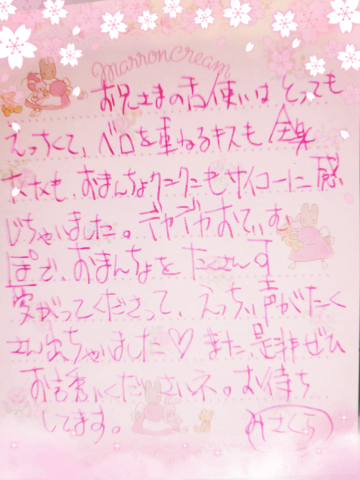 marroncream
お兄さまの舌使いはとっても
えっちくて、ベロを重ねるキスも全身
ナメも、おまんちょクニクニもサイコーに感
じちゃいました。デカデカおてぃむ
ぽで、おまんちょをたくさん
がってくださって、えっちぃ声がたく
さん出ちゃいました♡また、是非ぜひ
お誘いくださいネ。お待ち
してます。 みさくら